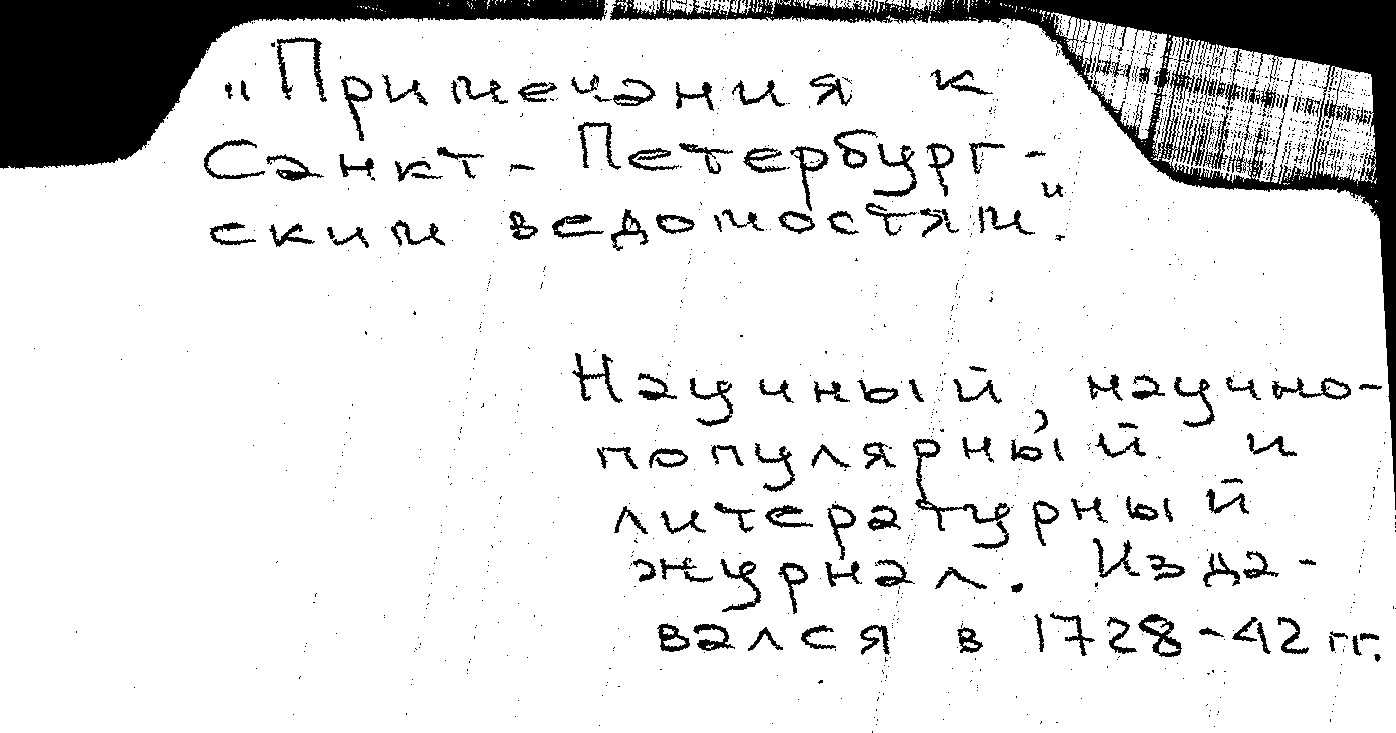 "Примечания к
Санкт-Петербург-
ским ведомостям".
Научный, научно-
популярный и
литературный
журнал. Изда-
вался в 1728-42 гг.